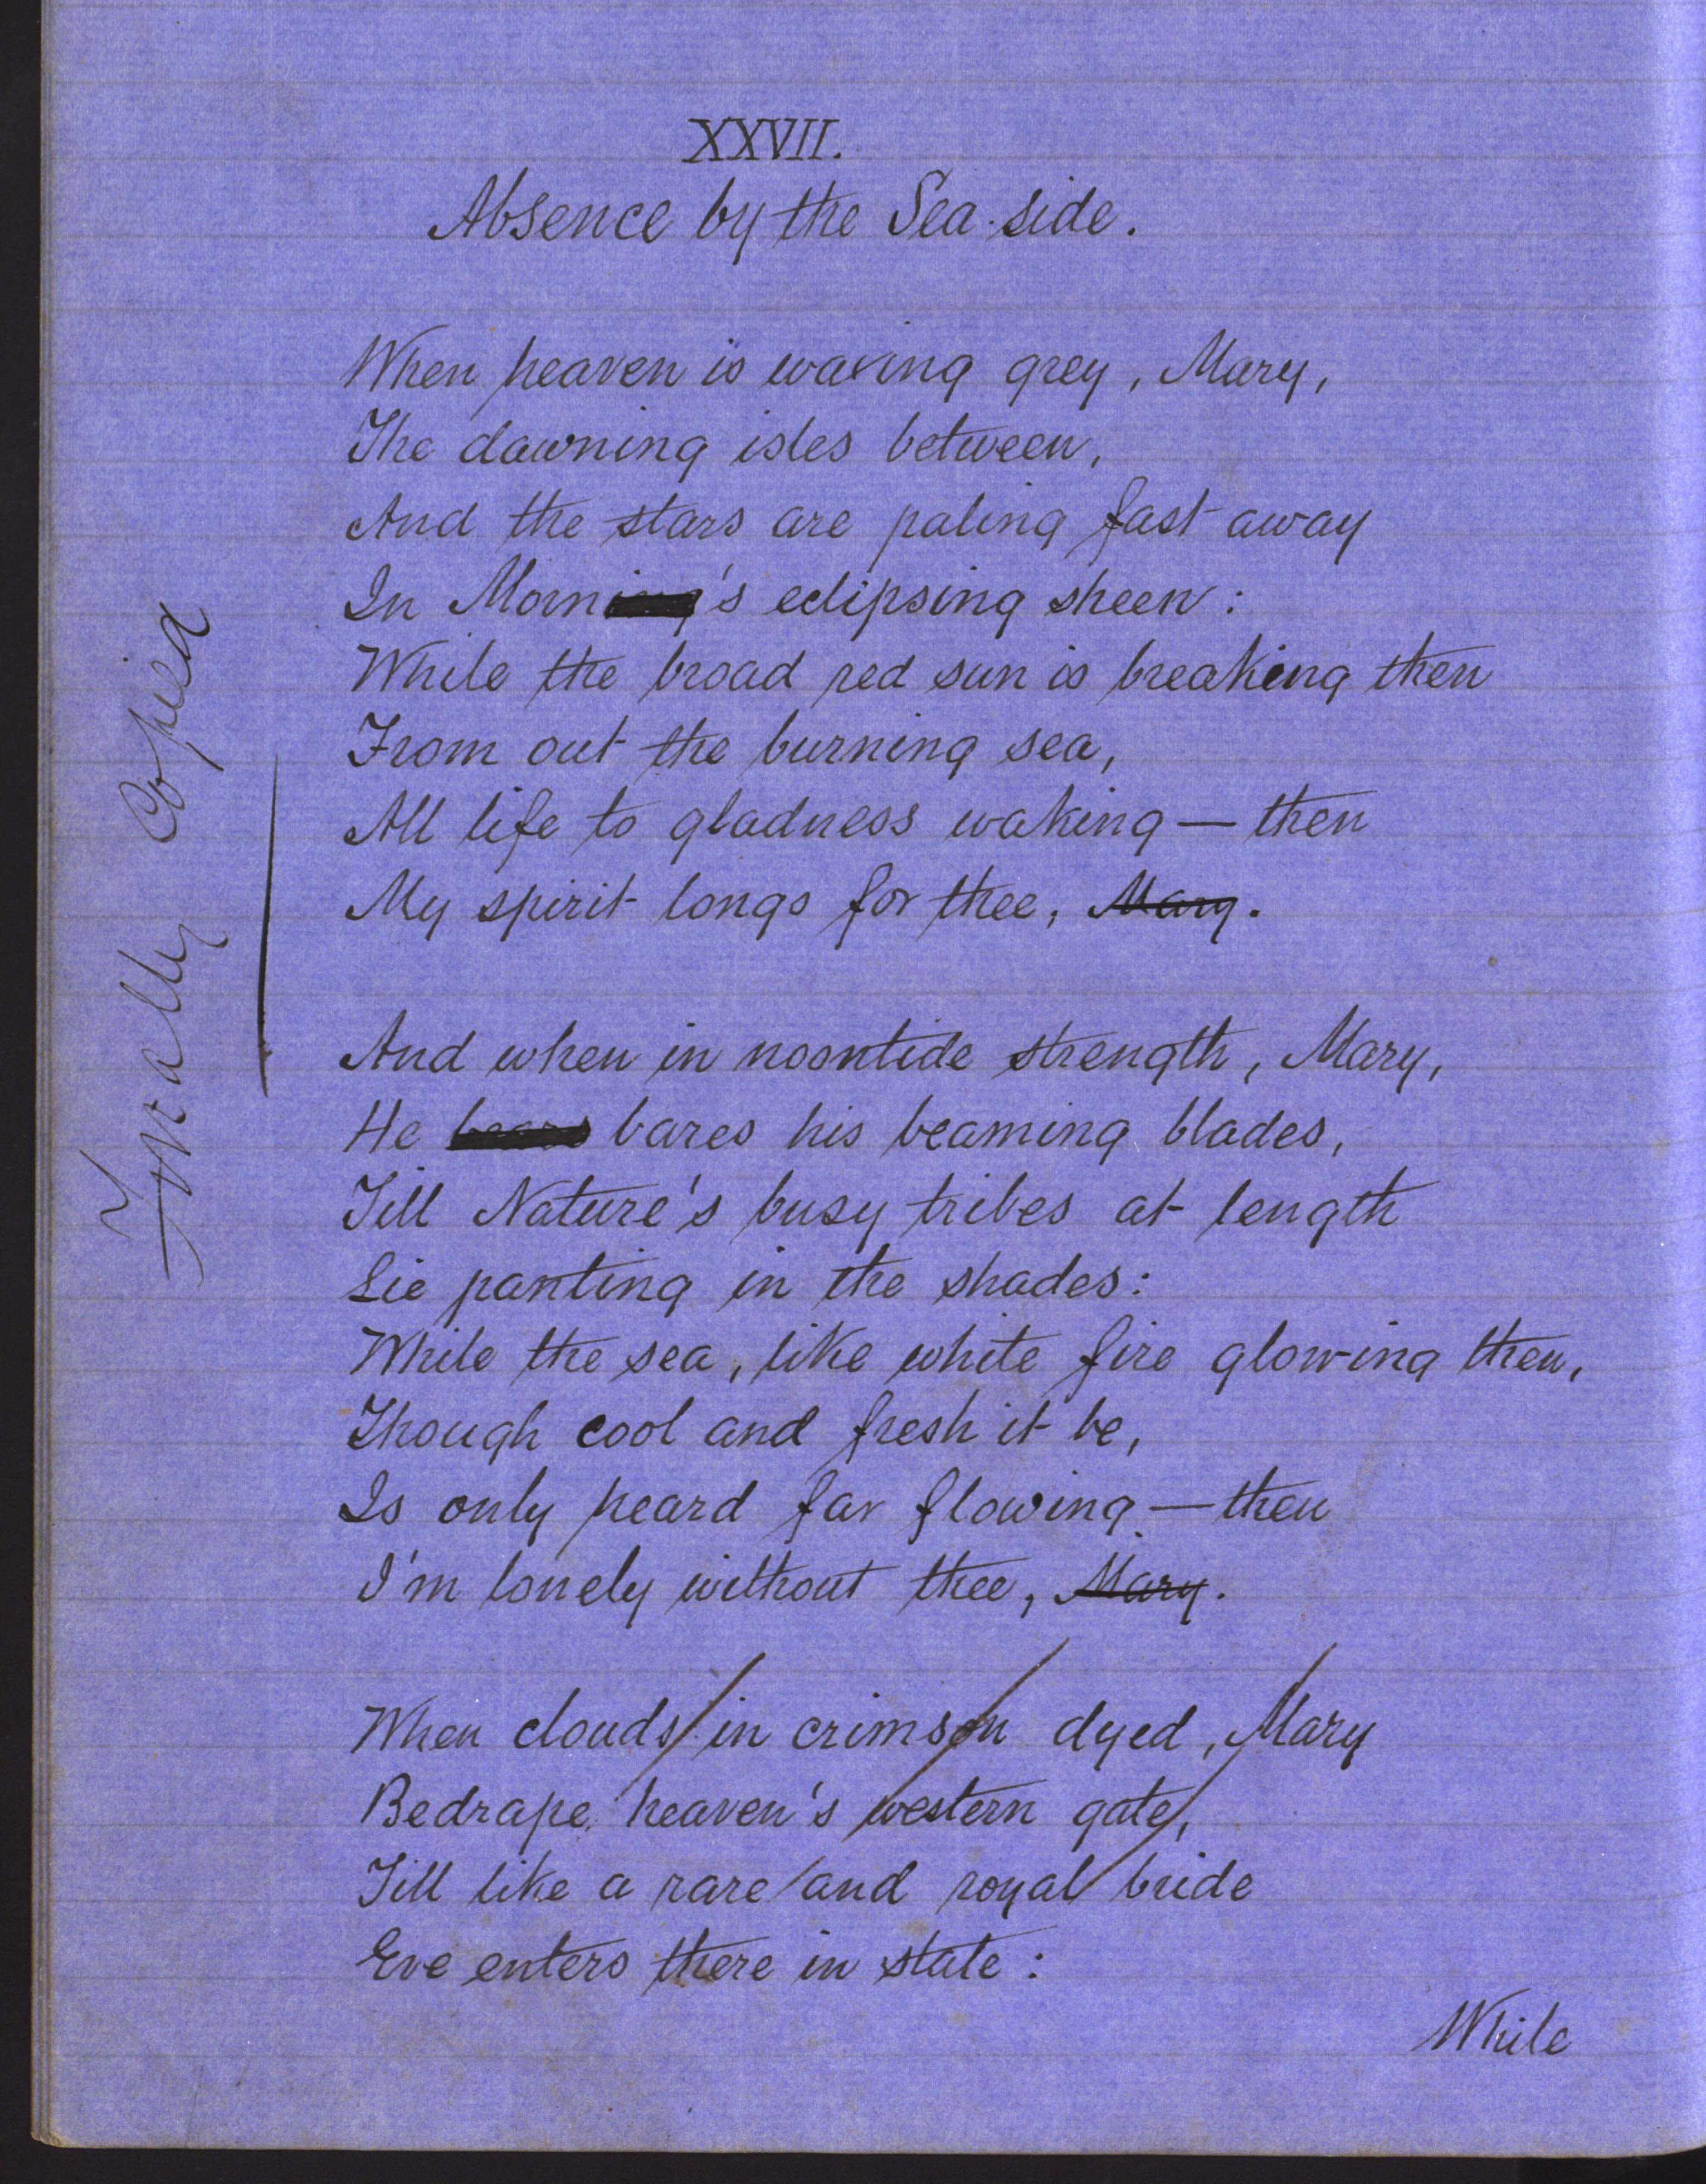 XXVII.
Absence by the Sea-side.
When heaven is waxing grey, Mary,
The dawning isles between,
And the stars are paling fast away
In Morning's eclipsing sheen:
While the broad red sun is breaking then
From out the burning sea,
All life to gladness waking — then
My spirit longs for thee, Mary.
And when in noontide strength, Mary,
He bears bares his beaming blades,
Till Nature's busy tribes at length
Lie panting in the shades:
While the sea, like white fire glowing then,
Though cool and fresh it be,
Is only heard far flowing — then
I'm lonely without thee, Mary.
When clouds in crimson dyed, Mary
Bedrape heaven's western gate,
Till like a rare and royal bride
Eve enters there in state:
While
Finally Copied